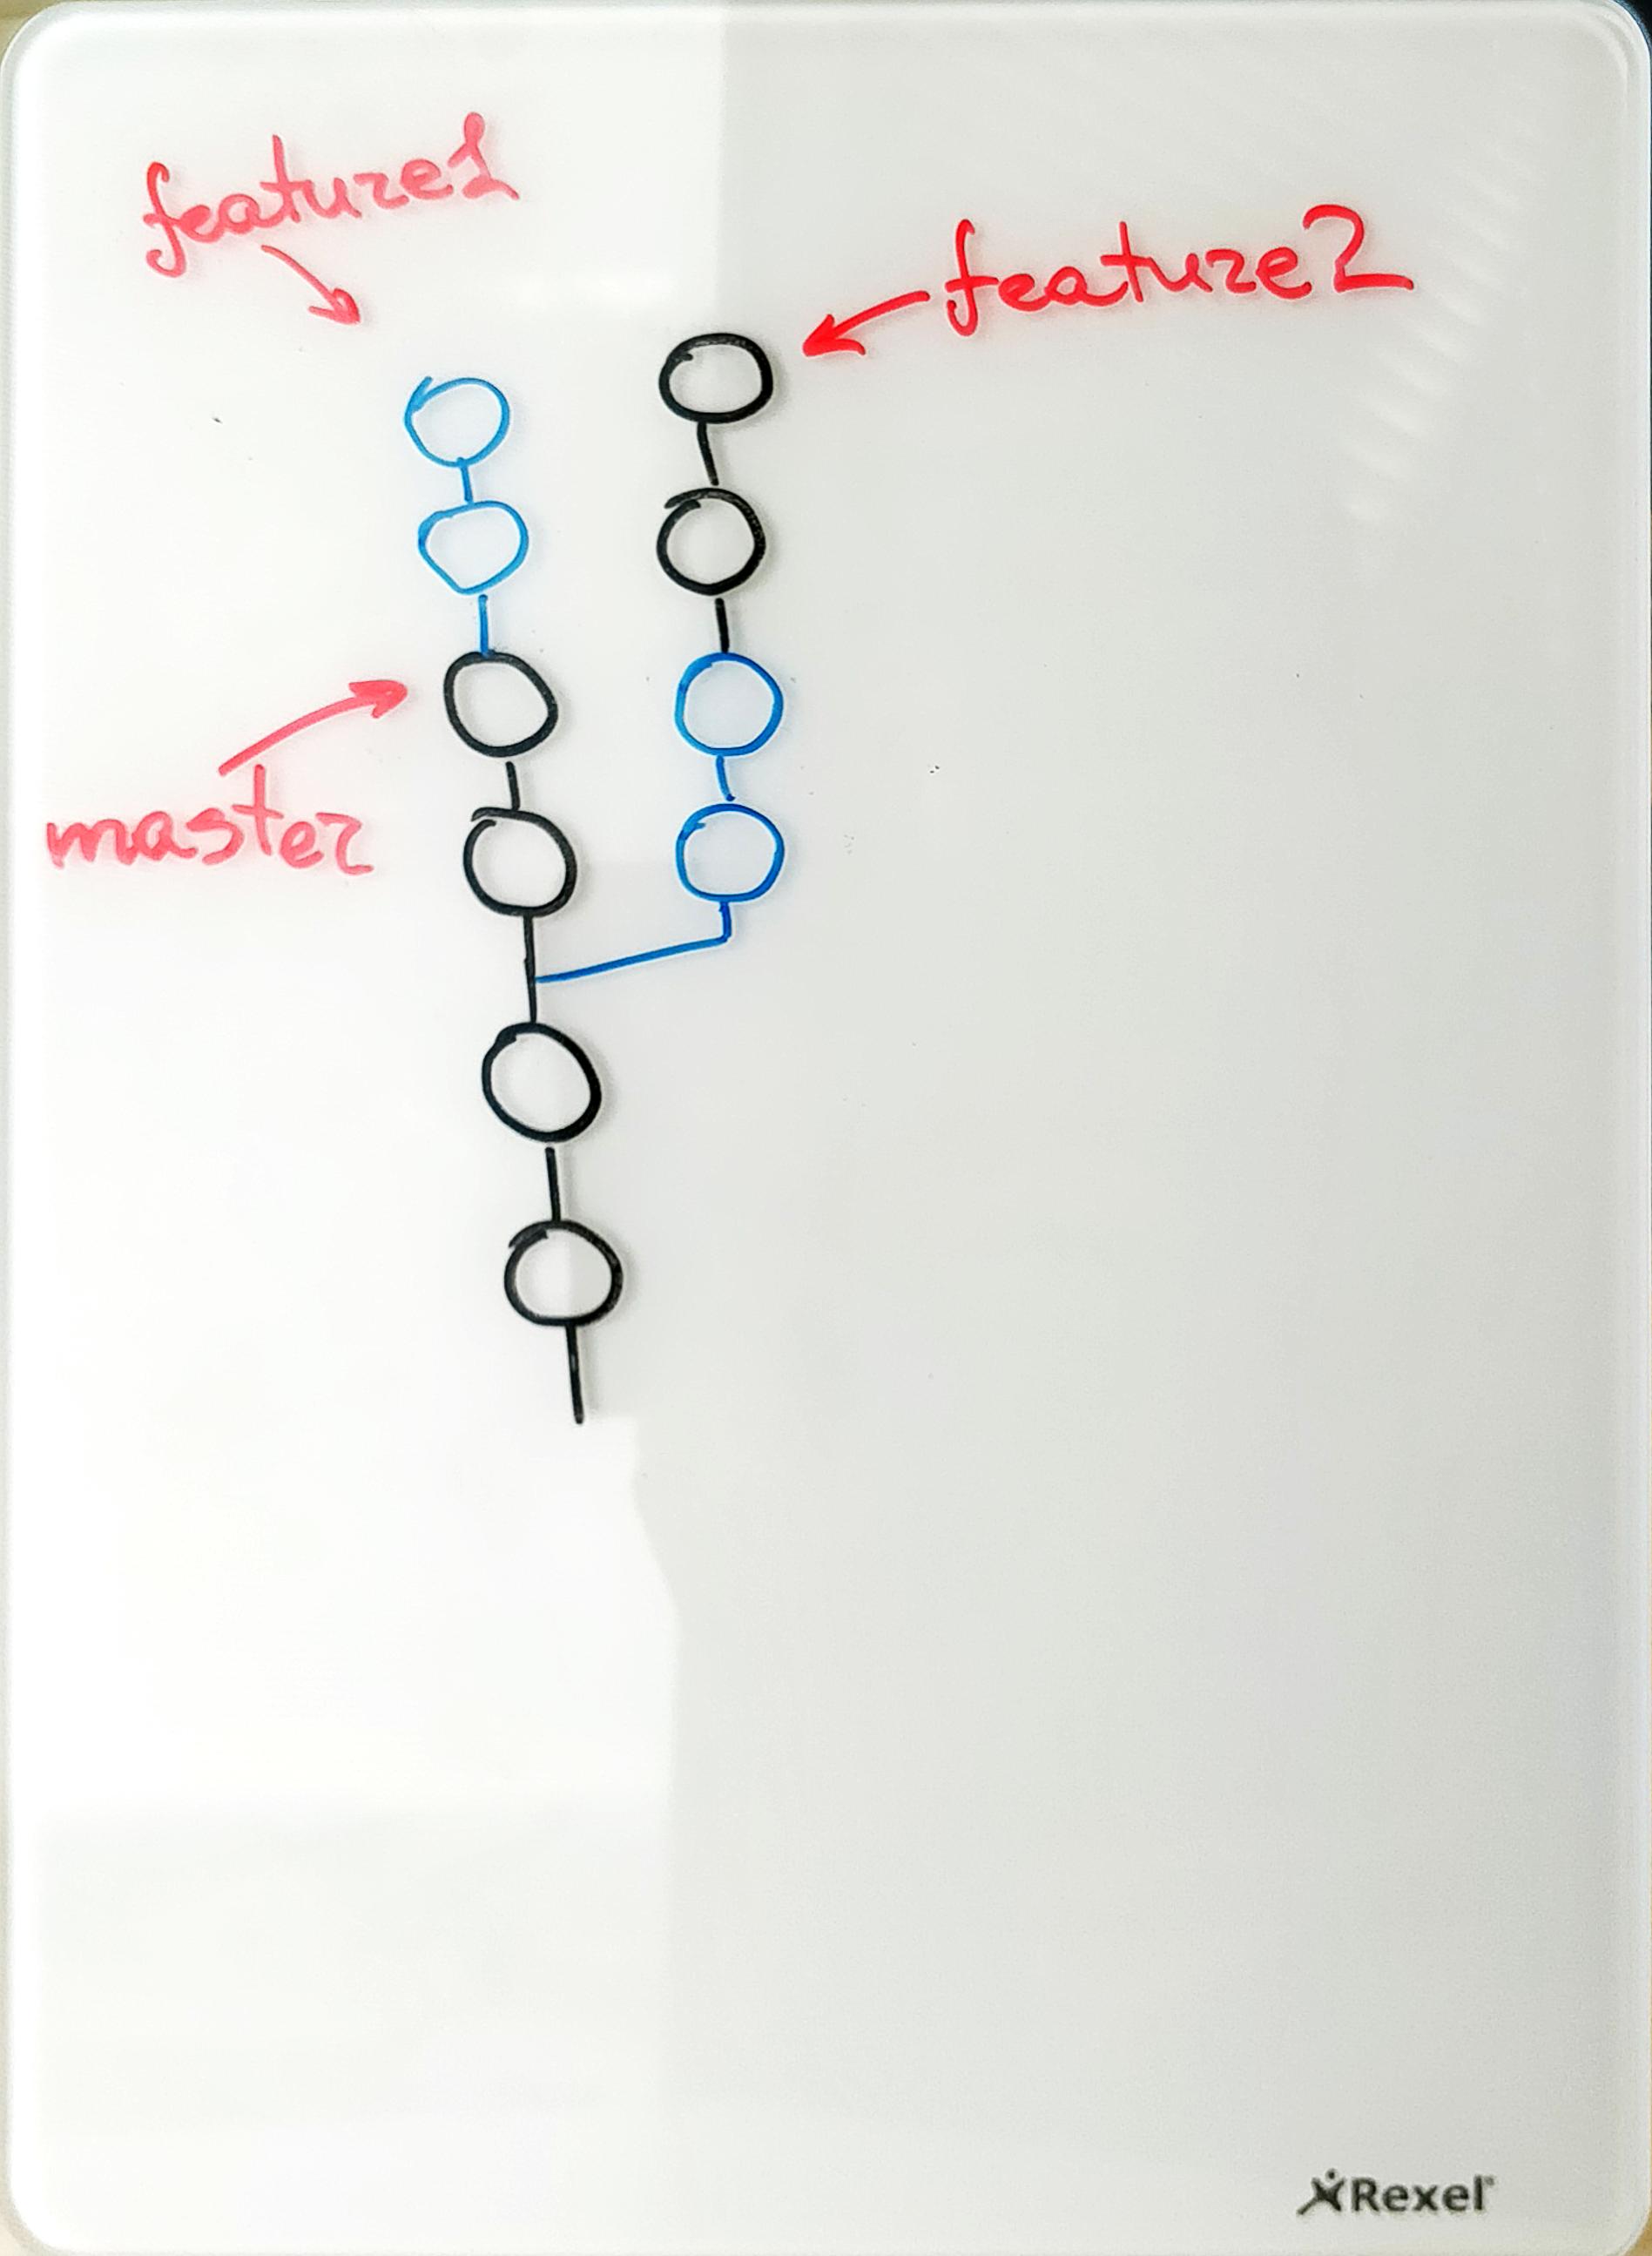 feature1
feature2
master
Rexel